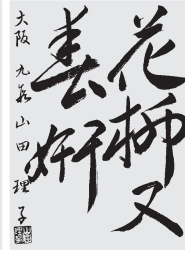 花柳又
春妍
大阪 九 山田理子